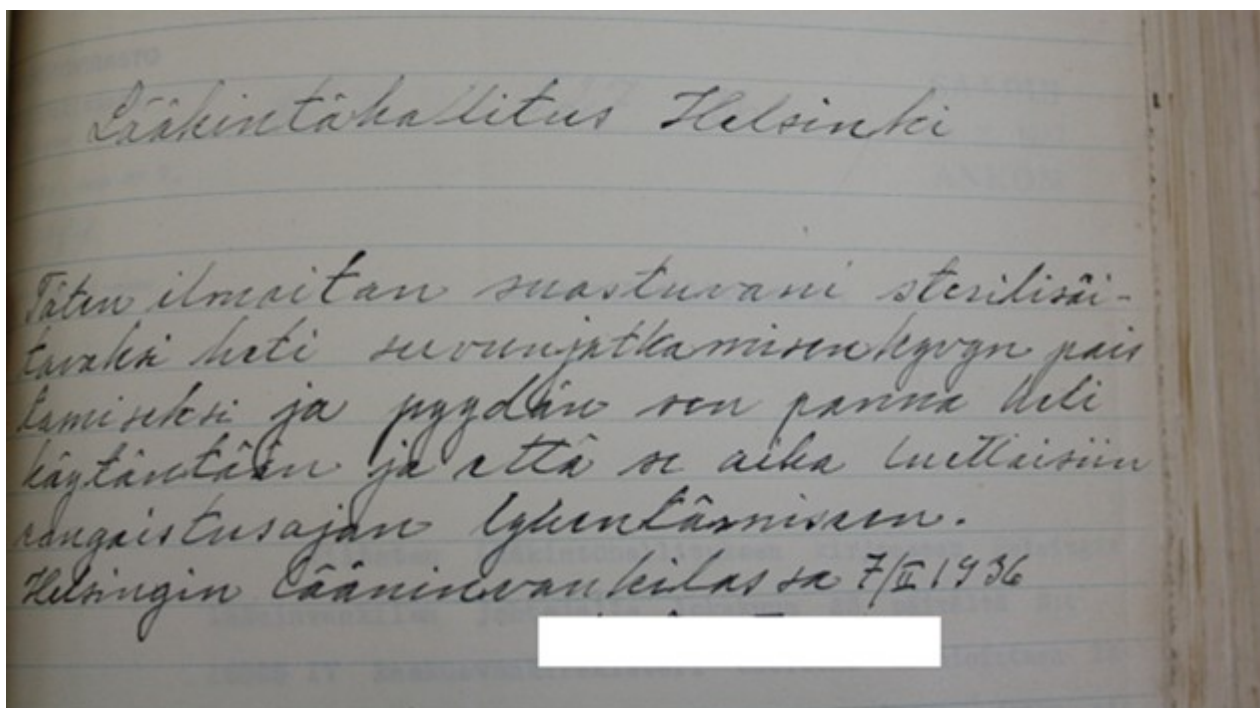 Lääkintähallitus Helsinki
Täten ilmoitan suostuvani sterilisöi-
tavaksi heti suvunjatkamisenkyvyn pois
tamiseksi ja pyydän sen panna heti
käytäntöön ja että se aika luettaisiin
rangaistusajan lyhentämiseen.
Helsingin Lääninvankilassa 7/II 1936